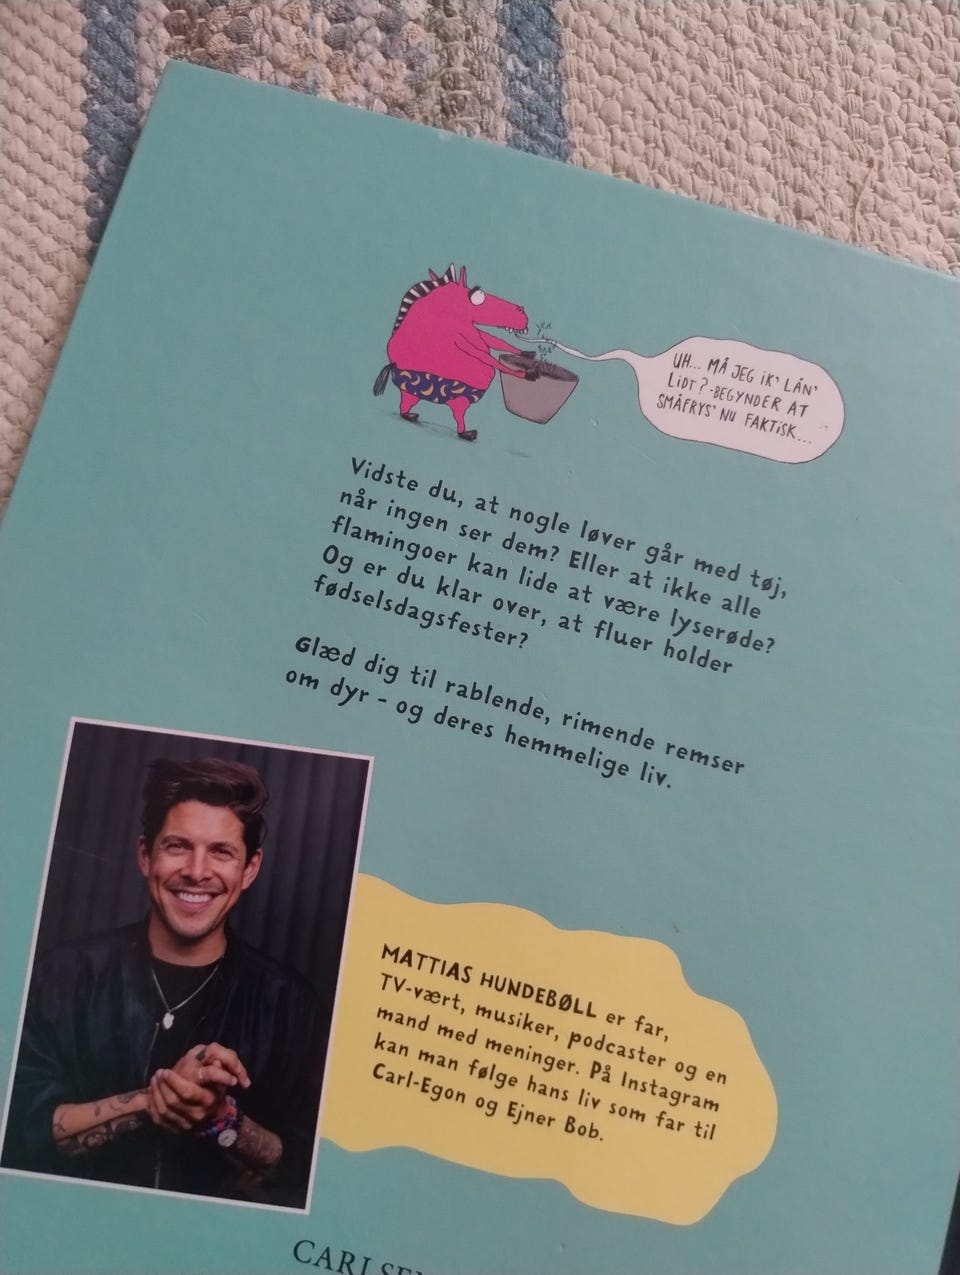 UH... MÅ JEG IK' LÅN'
LIDT? - BEGYNDER AT
SMÅFRYS' NU FAKTISK...
Vidste du, at nogle løver går med tøj,
når ingen ser dem? Eller at ikke alle
flamingoer kan lide at være lyserøde?
Og er du klar over, at fluer holder
fødselsdagsfester?
Glæd dig til rablende, rimende remser
om dyr - og deres hemmelige liv.
MATTIAS HUNDEBØLL er far,
TV-vært, musiker, podcaster og en
mand med meninger. På Instagram
kan man følge hans liv som far til
Carl-Egon og Ejner Bob.
CARLSEN